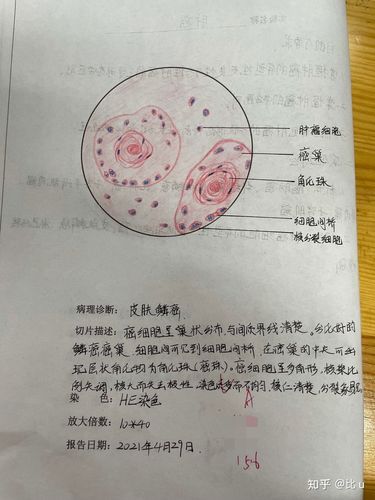 肿瘤细胞
癌巢
角化珠
细胞间桥
核分裂细胞
病理诊断: 皮肤鳞癌.
切片描述: 癌细胞呈巢状分布,与间质界线清楚。分化好的
鳞癌癌巢,细胞间可见到细胞间桥,在癌巢的中央可出
现层状角化物为角化珠(癌珠)。癌细胞呈多角形,核浆比
例失调,核大而失去极性,染色不匀,核仁清楚,分裂象易见
染 色: HE染色
放大倍数: 10*40
报告日期: 2021年4月29日.
A
156
知乎 @比u